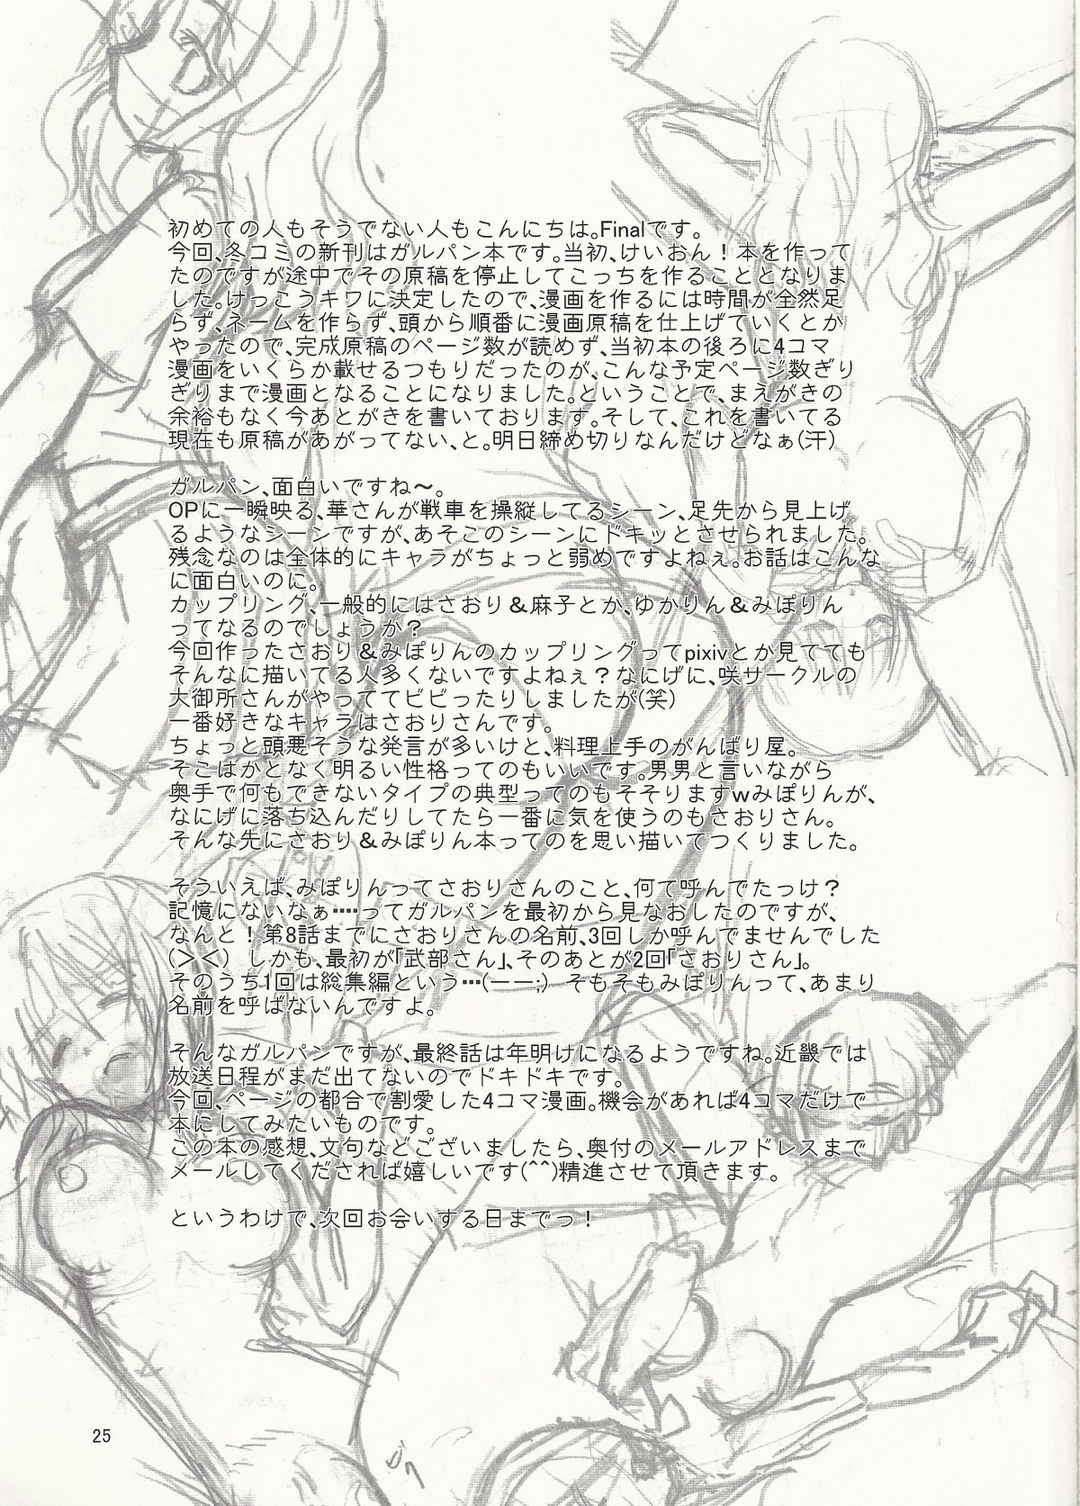 初めての人もそうでない人もこんにちは。Finalです。
今回、冬コミの新刊はガルパン本です。当初、けいおん！本を作って
たのですが途中でその原稿を停止してこっちを作ることとなりま
した。けっこうキワに決定したので、漫画を作るには時間が全然足
らず、ネームを作らず、頭から順番に漫画原稿を仕上げていくとか
やったので、完成原稿のページ数が読めず、当初本の後ろに4コマ
漫画をいくらか載せるつもりだったのが、こんな予定ページ数ぎり
ぎりまで漫画となることになりました。ということで、まえがきの
余裕もなく今あとがきを書いております。そして、これを書いてる
現在も原稿があがってない、と。明日締め切りなんだけどなぁ(汗)
ガルパン、面白いですね～。
OPに一瞬映る、華さんが戦車を操縦してるシーン、足先から見上げ
るようなシーンですが、あそこのシーンにドキッとさせられました。
残念なのは全体的にキャラがちょっと弱めですよねぇ。お話はこんな
に面白いのに。
カップリング、一般的にはさおり＆麻子とか、ゆかりん＆みぽりん
ってなるのでしょうか？
今回作ったさおり＆みぽりんのカップリングってpixivとか見てても
そんなに描いてる人多くないですよねぇ？なにげに、咲サークルの
大御所さんがやっててビビったりしましたが(笑)
一番好きなキャラはさおりさんです。
ちょっと頭悪そうな発言が多いけと、料理上手のがんばり屋。
そこはかとなく明るい性格ってのもいいです。男男と言いながら
奥手で何もできないタイプの典型ってのもそそりますwみぽりんが、
なにげに落ち込んだりしてたら一番に気を使うのもさおりさん。
そんな先にさおり＆みぽりん本ってのを思い描いてつくりました。
そういえば、みぽりんってさおりさんのこと、何て呼んでたっけ？
記憶にないなぁ‥‥ってガルパンを最初から見なおしたのですが、
なんと！第8話までにさおりさんの名前、3回しか呼んでませんでした
(＞＜) しかも、最初が「武部さん」、そのあとが2回「さおりさん」。
そのうち1回は総集編という…(ーー;) そもそもみぽりんって、あまり
名前を呼ばないんですよ。
そんなガルパンですが、最終話は年明けになるようですね。近畿では
放送日程がまだ出てないのでドキドキです。
今回、ページの都合で割愛した4コマ漫画。機会があれば4コマだけで
本にしてみたいものです。
この本の感想、文句などございましたら、奥付のメールアドレスまで
メールしてくだされば嬉しいです(^^)精進させて頂きます。
というわけで、次回お会いする日までっ！
25